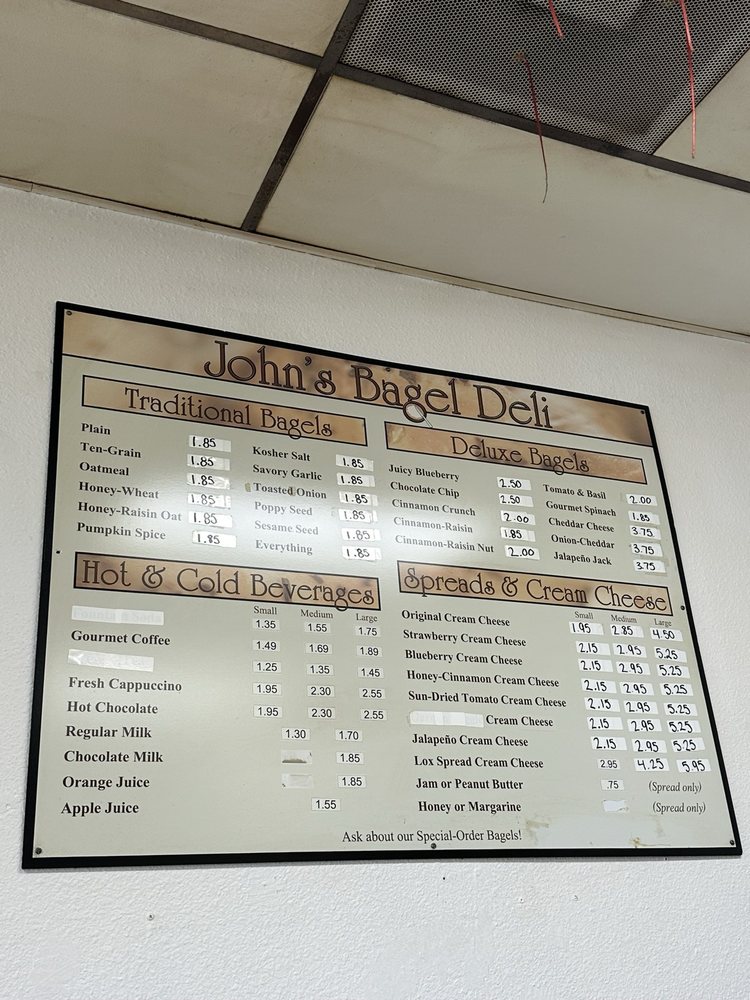 John's Bagel Deli
Traditional Bagels
Plain 1.85
Ten-Grain 1.85
Oatmeal 1.85
Honey-Wheat 1.85
Honey-Raisin Oat 1.85
Pumpkin Spice 1.85
Kosher Salt 1.85
Savory Garlic 1.85
Toasted Onion 1.85
Poppy Seed 1.85
Sesame Seed 1.85
Everything 1.85
Deluxe Bagels
Juicy Blueberry 2.50
Chocolate Chip 2.50
Cinnamon Crunch 2.00
Cinnamon-Raisin 1.85
Cinnamon-Raisin Nut 2.00
Tomato & Basil 2.00
Gourmet Spinach 1.85
Cheddar Cheese 3.75
Onion-Cheddar 3.75
Jalapeño Jack 3.75
Hot & Cold Beverages
Small Medium Large
1.35 1.55 1.75
Gourmet Coffee 1.49 1.69 1.89
1.25 1.35 1.45
Fresh Cappuccino 1.95 2.30 2.55
Hot Chocolate 1.95 2.30 2.55
Regular Milk 1.30 1.70
Chocolate Milk 1.85
Orange Juice 1.85
Apple Juice 1.55
Spreads & Cream Cheese
Small Medium Large
Original Cream Cheese 1.95 2.85 4.50
Strawberry Cream Cheese 2.15 2.95 5.25
Blueberry Cream Cheese 2.15 2.95 5.25
Honey-Cinnamon Cream Cheese 2.15 2.95 5.25
Sun-Dried Tomato Cream Cheese 2.15 2.95 5.25
Cream Cheese 2.15 2.95 5.25
Jalapeño Cream Cheese 2.15 2.95 5.25
Lox Spread Cream Cheese 2.95 4.25 5.95
Jam or Peanut Butter .75 (Spread only)
Honey or Margarine (Spread only)
Ask about our Special-Order Bagels!